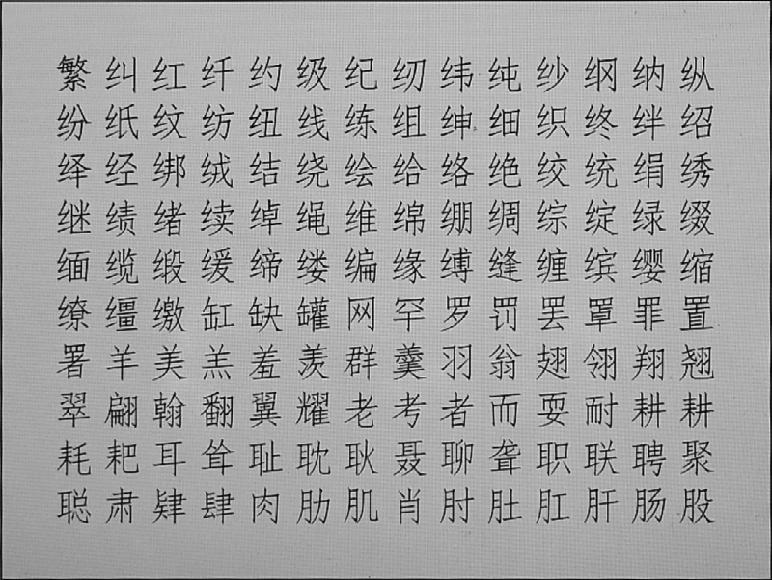 繁纠红纤约级纪纫纬纯纱纲纳纵
纷纸纹纺纽线练组绅细织终绊绍
绎经绑绒结绕绘给络绝绞统绢绣
继绩绪续绰绳维绵绷绸综绽绿缀
缅缆缎缓缔缕编缘缚缝缠缤缨缩
缭缰缴缸缺罐网罕罗罚罢罩罪置
署羊美羔羞羡群羹羽翁翅翎翔翘
翠翩翰翻翼耀老考者而耍耐耕耕
耗耙耳耸耻耽耿聂聊聋职联聘聚
聪肃肄肆肉肋肌肖肘肚肛肝肠股